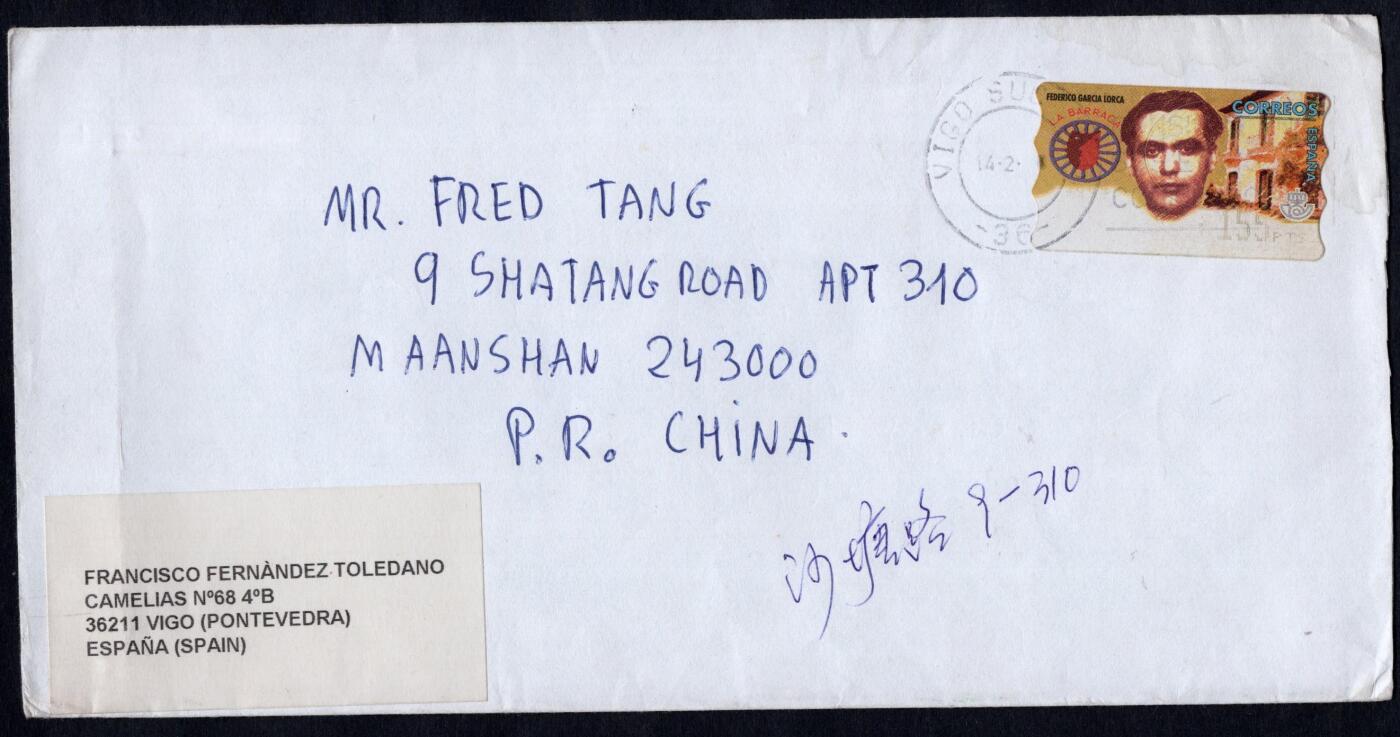 VIGO SUC
14-2-
-36-
FEDERICO GARCIA LORCA
LA BARRACA
CORREOS
ESPAÑA
155 PTS
MR. FRED TANG
9 SHATANG ROAD APT 310
MAANSHAN 243000
P.R. CHINA.
沙塘路 9-310
FRANCISCO FERNÀNDEZ TOLEDANO
CAMELIAS Nº68 4ºB
36211 VIGO (PONTEVEDRA)
ESPAÑA (SPAIN)